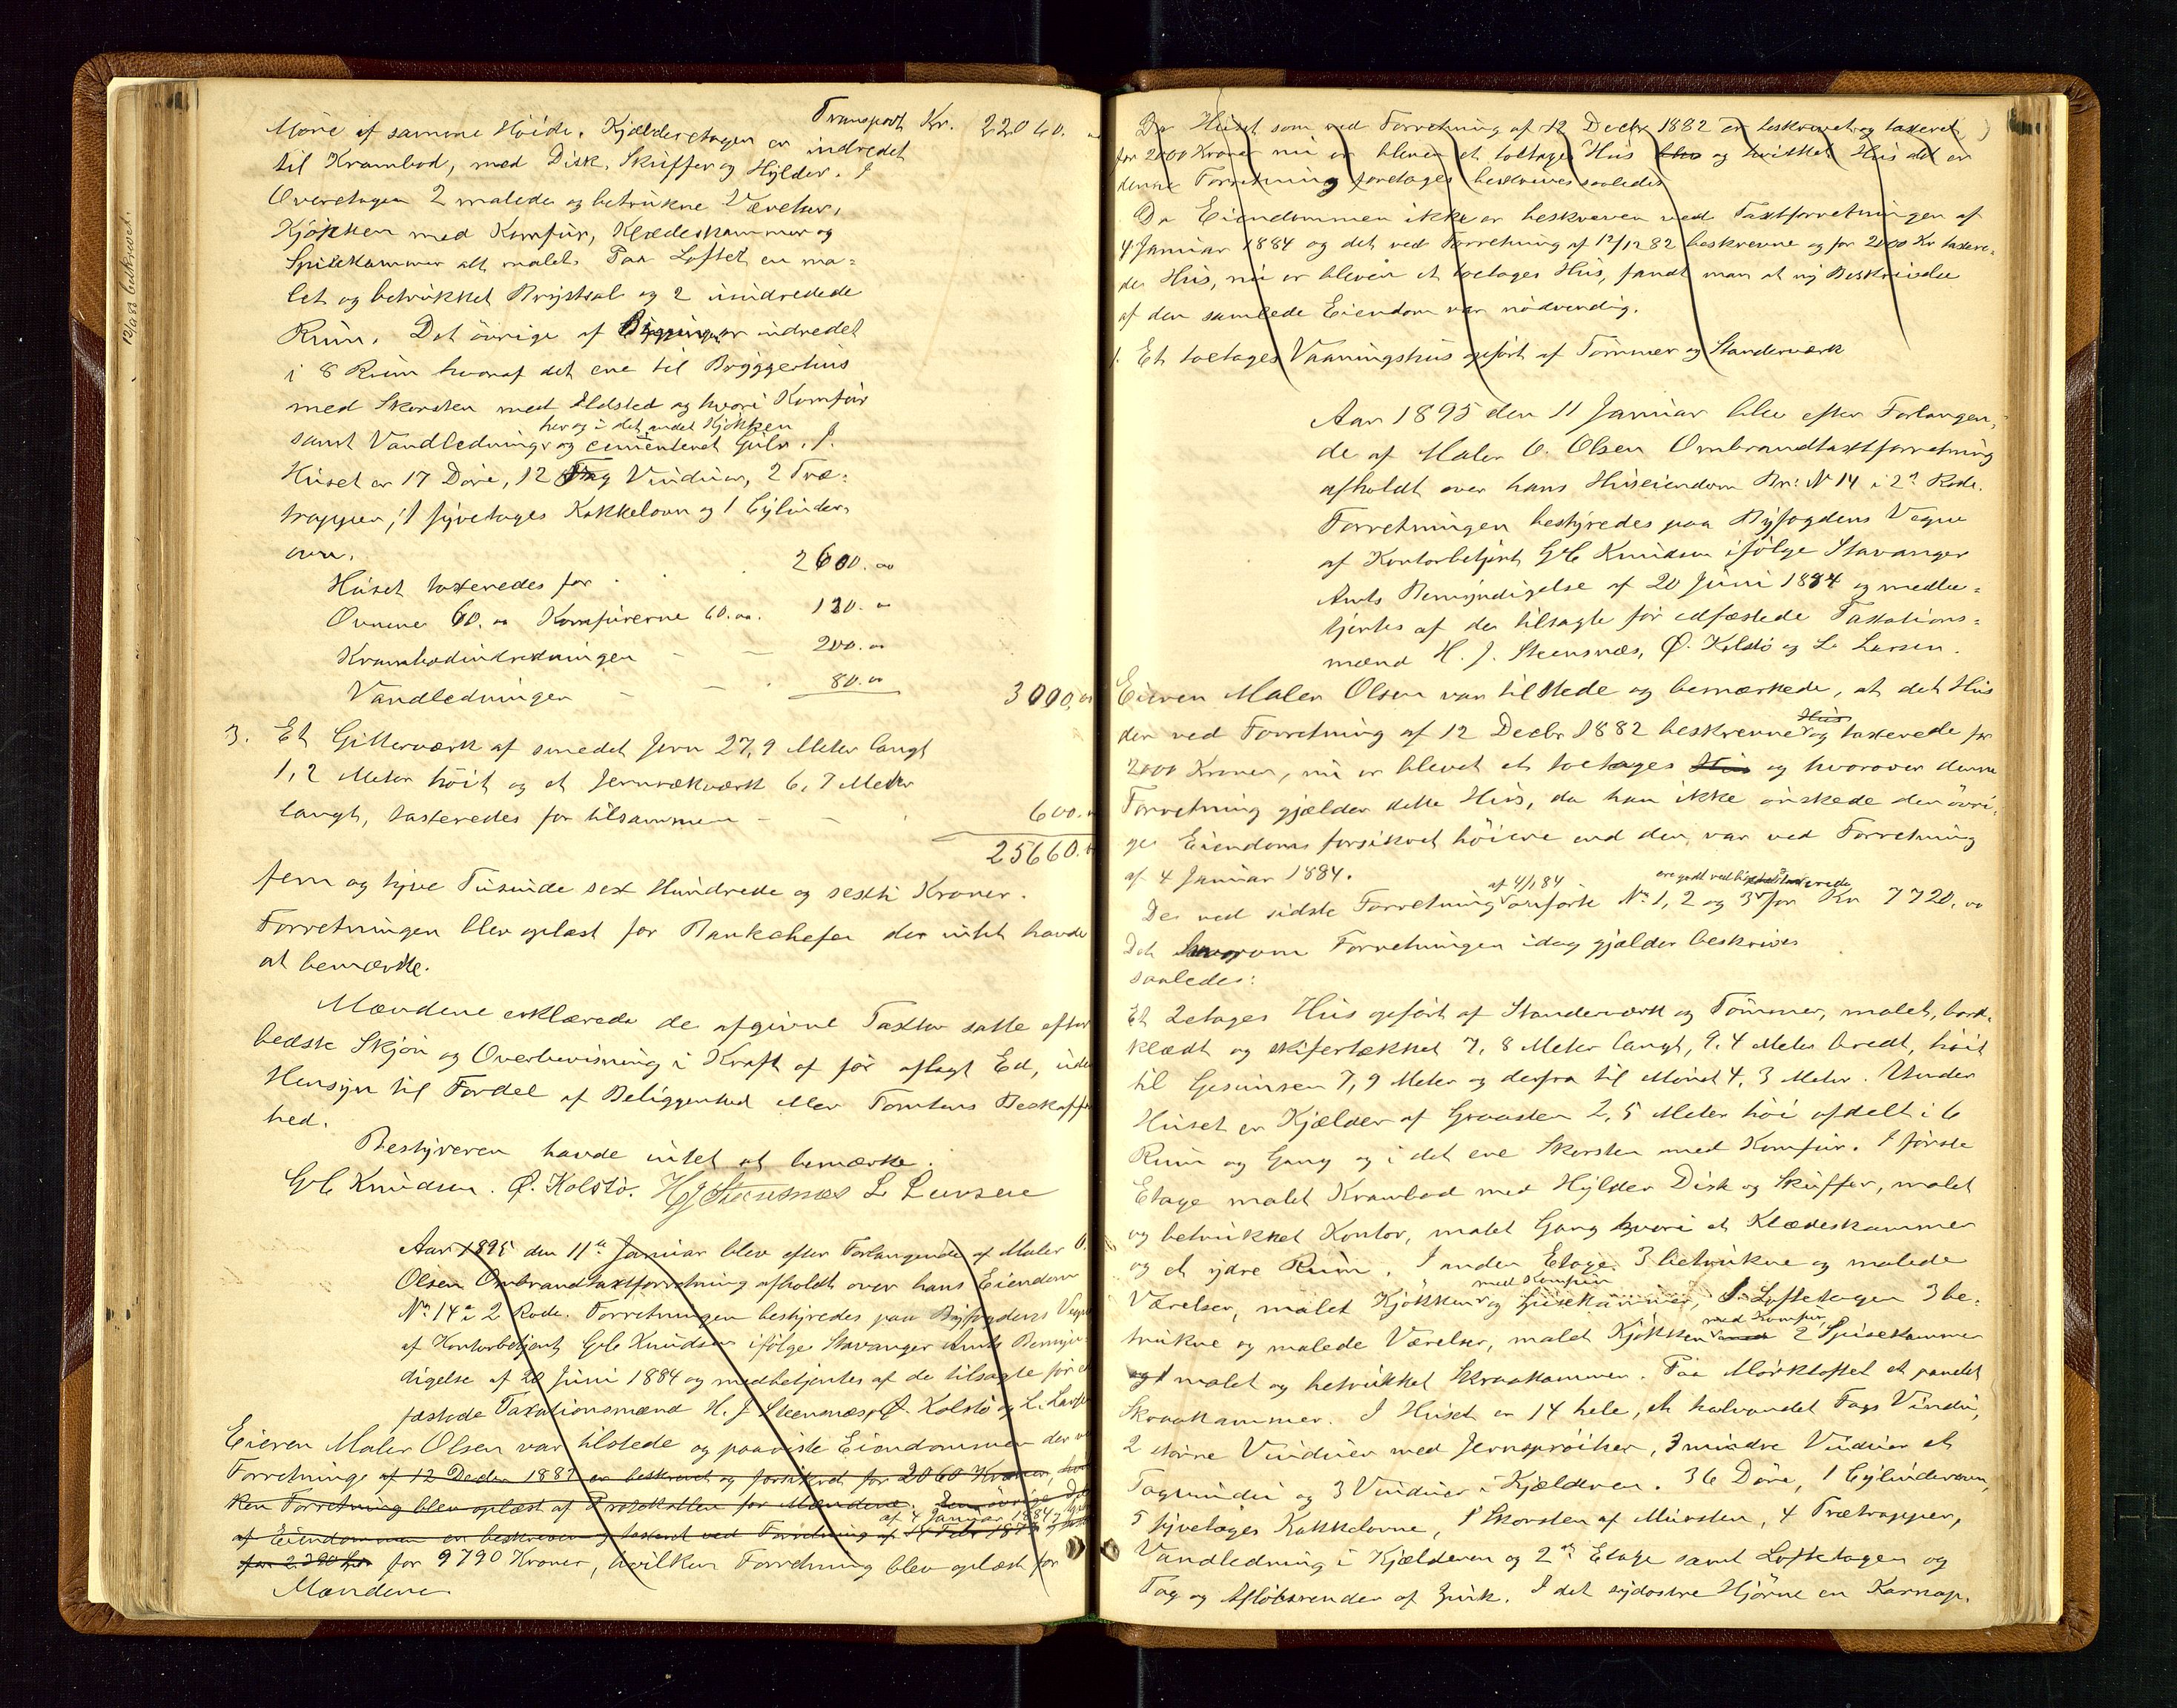 12/12 82 beskrevet.
Transport Kr. 22060.
Møne af samme Høide. Kjælderetagen er indredet
til Krambod, med Disk, Skuffer og Hylder. I
Overetagen 2 malede og betrukne Værelser,
Kjøkken med Komfur, Klædeskammer og
Spisekammer alt malet. Paa Loftet en ma=
let og betrukket Brystsal og 2 uindredede
Rum. Det øvrige af Bygningen er indredet
i 8 Rum hvoraf det ene til Bryggerhus
med Skorsten med Ildsted og hvori Komfur
her og i det andet Kjøkken
samt Vandledning og cementeret Gulv. I
Huset er 17 Døre, 12 Fag Vinduer, 2 Træ=
trapper, 1 fyretages Kakkelovn og 1 Cylinder
ovn.
Huset taxeredes for 2600.00
Ovnene 60.00 Komfurerne 60.00. 120.00
Krambodindredningen 200.00
Vandledningen 80.00
3000,00
3. Et Gitterværk af smedet Jern 27,9 Meter langt
1,2 Meter høit og et Jernrækværk 6,7 Meter
langt, taxeredes for tilsammen 600.
25660.
fem og tyve Tusinde sex Hundrede og sexti Kroner.
Forretningen blev oplæst for Bankchefen der intet havde
at bemærke.
Mændene erklærede de afgivne Taxter satte efter
bedste Skjøn og Overbevisning i Kraft af før aflagt Ed, uden
Hensyn til Fordel af Beliggenhed eller Tomtens Beskaffen
hed.
Bestyreren havde intet at bemærke.
GC Knudsen. Ø. Kolstø. HJ Steensnæs L Larsen
Aar 1895 den 11te Januar blev efter Forlangende af Maler O.
Olsen Ombrandtaxtforretning afholdt over hans Eiendom
No 14 i 2 Rode. Forretningen bestyredes paa Byfogdens Vegne
af Kontorbetjent GC Knudsen ifølge Stavanger Amts Bemyn
digelse af 20 Juni 1884 og medbetjentes af de tilsagte før ed
fæstede Taxationsmænd H. J. Steensnæs, Ø. Kolstø og L. Larsen
Eieren Maler Olsen var tilstede og paaviste Eiendommen der v
Forretninge af 12 Decbr 1882 er beskrevet og forsikret for 2060 Kroner, hvil
ken Forretning blev oplæst af Protokollen for Mændene. Den øvrige Del
af 4 Januar 1884
af Eiendommen er beskreven og taxeret ved Forretning af 14 Febr
for 2290 Kr for 9790 Kroner, hvilken Forretning blev oplæst for
Mændene
Da Huset som ved Forretning af 12 Decbr 1882 er beskrevet og taxeret
for 2000 Kroner nu er bleven et toetages Hus og hvilket Hus det er
denne Forretning foretages beskrives saaledes
Da Eiendommen ikke er beskreven ved Taxtforretningen af
4 Januar 1884 og det ved Forretning af 12/12 82 beskrevne og for 2000 Kr taxere=
de Hus, nu er bleven et toetages Hus, fandt man at ny Beskrivelse
af den samlede Eiendom var nødvendig.
1. Et toetages Vaaningshus opført af Tømmer og Standerværk
Aar 1895 den 11 Januar blev efter Forlangen=
de af Maler O. Olsen Ombrandtaxtforretning
afholdt over hans Huseiendom Br: No 14 i 2n Rode.
Forretningen bestyredes paa Byfogdens Vegne
af Kontorbetjent GC Knudsen ifølge Stavanger
Amts Bemyndigelse af 20 Juni 1884 og medbe=
tjentes af de tilsagte før edfæstede Taxations=
mænd H. J. Steensnæs, Ø. Kolstø og L. Larsen.
Eieren Maler Olsen var tilstede og bemærkede, at det Hus
Hus
der ved Forretning af 12 Decbr 1882 beskrevne og taxerede for
2000 Kroner, nu er blevet et toetages Hus og hvorover denne
Forretning gjælder dette Hus, da han ikke ønskede den øvri=
ge Eiendoms forsikret høiere end den var ved Forretning
af 4 Januar 1884.
af 4/1 84
De ved sidste Forretning anførte No 1, 2 og 3 for Kr 7720.00
Det hvorom Forretningen idag gjælder beskrives
saaledes:
Et 2etages Hus opført af Standerværk og Tømmer, malet, bord=
klædt og skifertækket 7,8 Meter langt, 9,4 Meter bredt, høit
til Gesimsen 7,9 Meter og derfra til Mønet 4,3 Meter. Under
Huset er Kjælder af Graasten 2,5 Meter høi afdelt i 6
Rum og Gang og i det ene Skorsten med Komfur. I første
Etage malet Krambod med Hylder Disk og Skuffer, malet
og betrukket Kontor, malet Gang hvori et Klædeskammer
og et ydre Rum. I anden Etage 3 betrukne og malede
med Komfur
Værelser, malet Kjøkken og Spisekammer, I Loftetagen 3 be=
med Komfur,
trukne og malede Værelser, malet Kjøkken 2 Spisekammer
og 1 malet og betrukket Skraakammer. Paa Mørkloftet et panelet
Skraakammer. I Huset er 14 hele, et halvandet Fags Vindu,
2 større Vinduer med Jernsprøiser, 3 mindre Vinduer et
Tagvindu og 3 Vinduer i Kjælderen. 36 Døre, 1 Cylinderovn,
5 fyretages Kakkelovne, 1 Skorsten af Mursten, 4 Trætrapper,
Vandledning i Kjælderen og 2den Etage samt Loftetagen og
Tag og Afløbsrender af Zink. I det sydøstre Hjørne en Karnap.